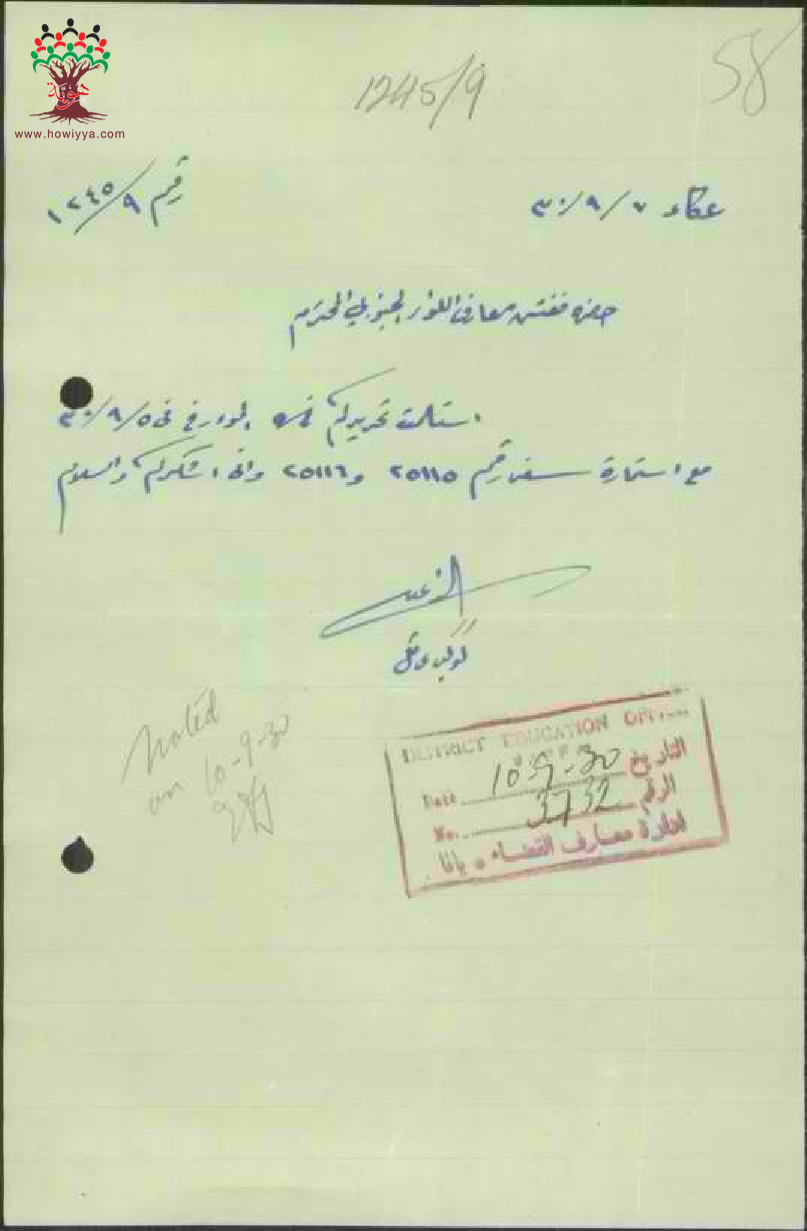 هوية
www.howiyya.com
1245/9
58
عكاء ٧/٩/٣٠
رقم ١٢٤٥/٩
حضرة مفتش معارف اللواء الجنوبي المحترم
استلمت تحريركم المؤرخ في ٥/٩/٣٠
مع استمارة سفر رقم ٢٥١١٥ و٢٥١١٦ واني اشكركم والسلام
الداعيه
كوكب
noted
on 10-9-30
DISTRICT EDUCATION OFFICE
التاريخ 10-9-30 Date
الرقم 3732 No.
ادارة معارف القضاء . يافا